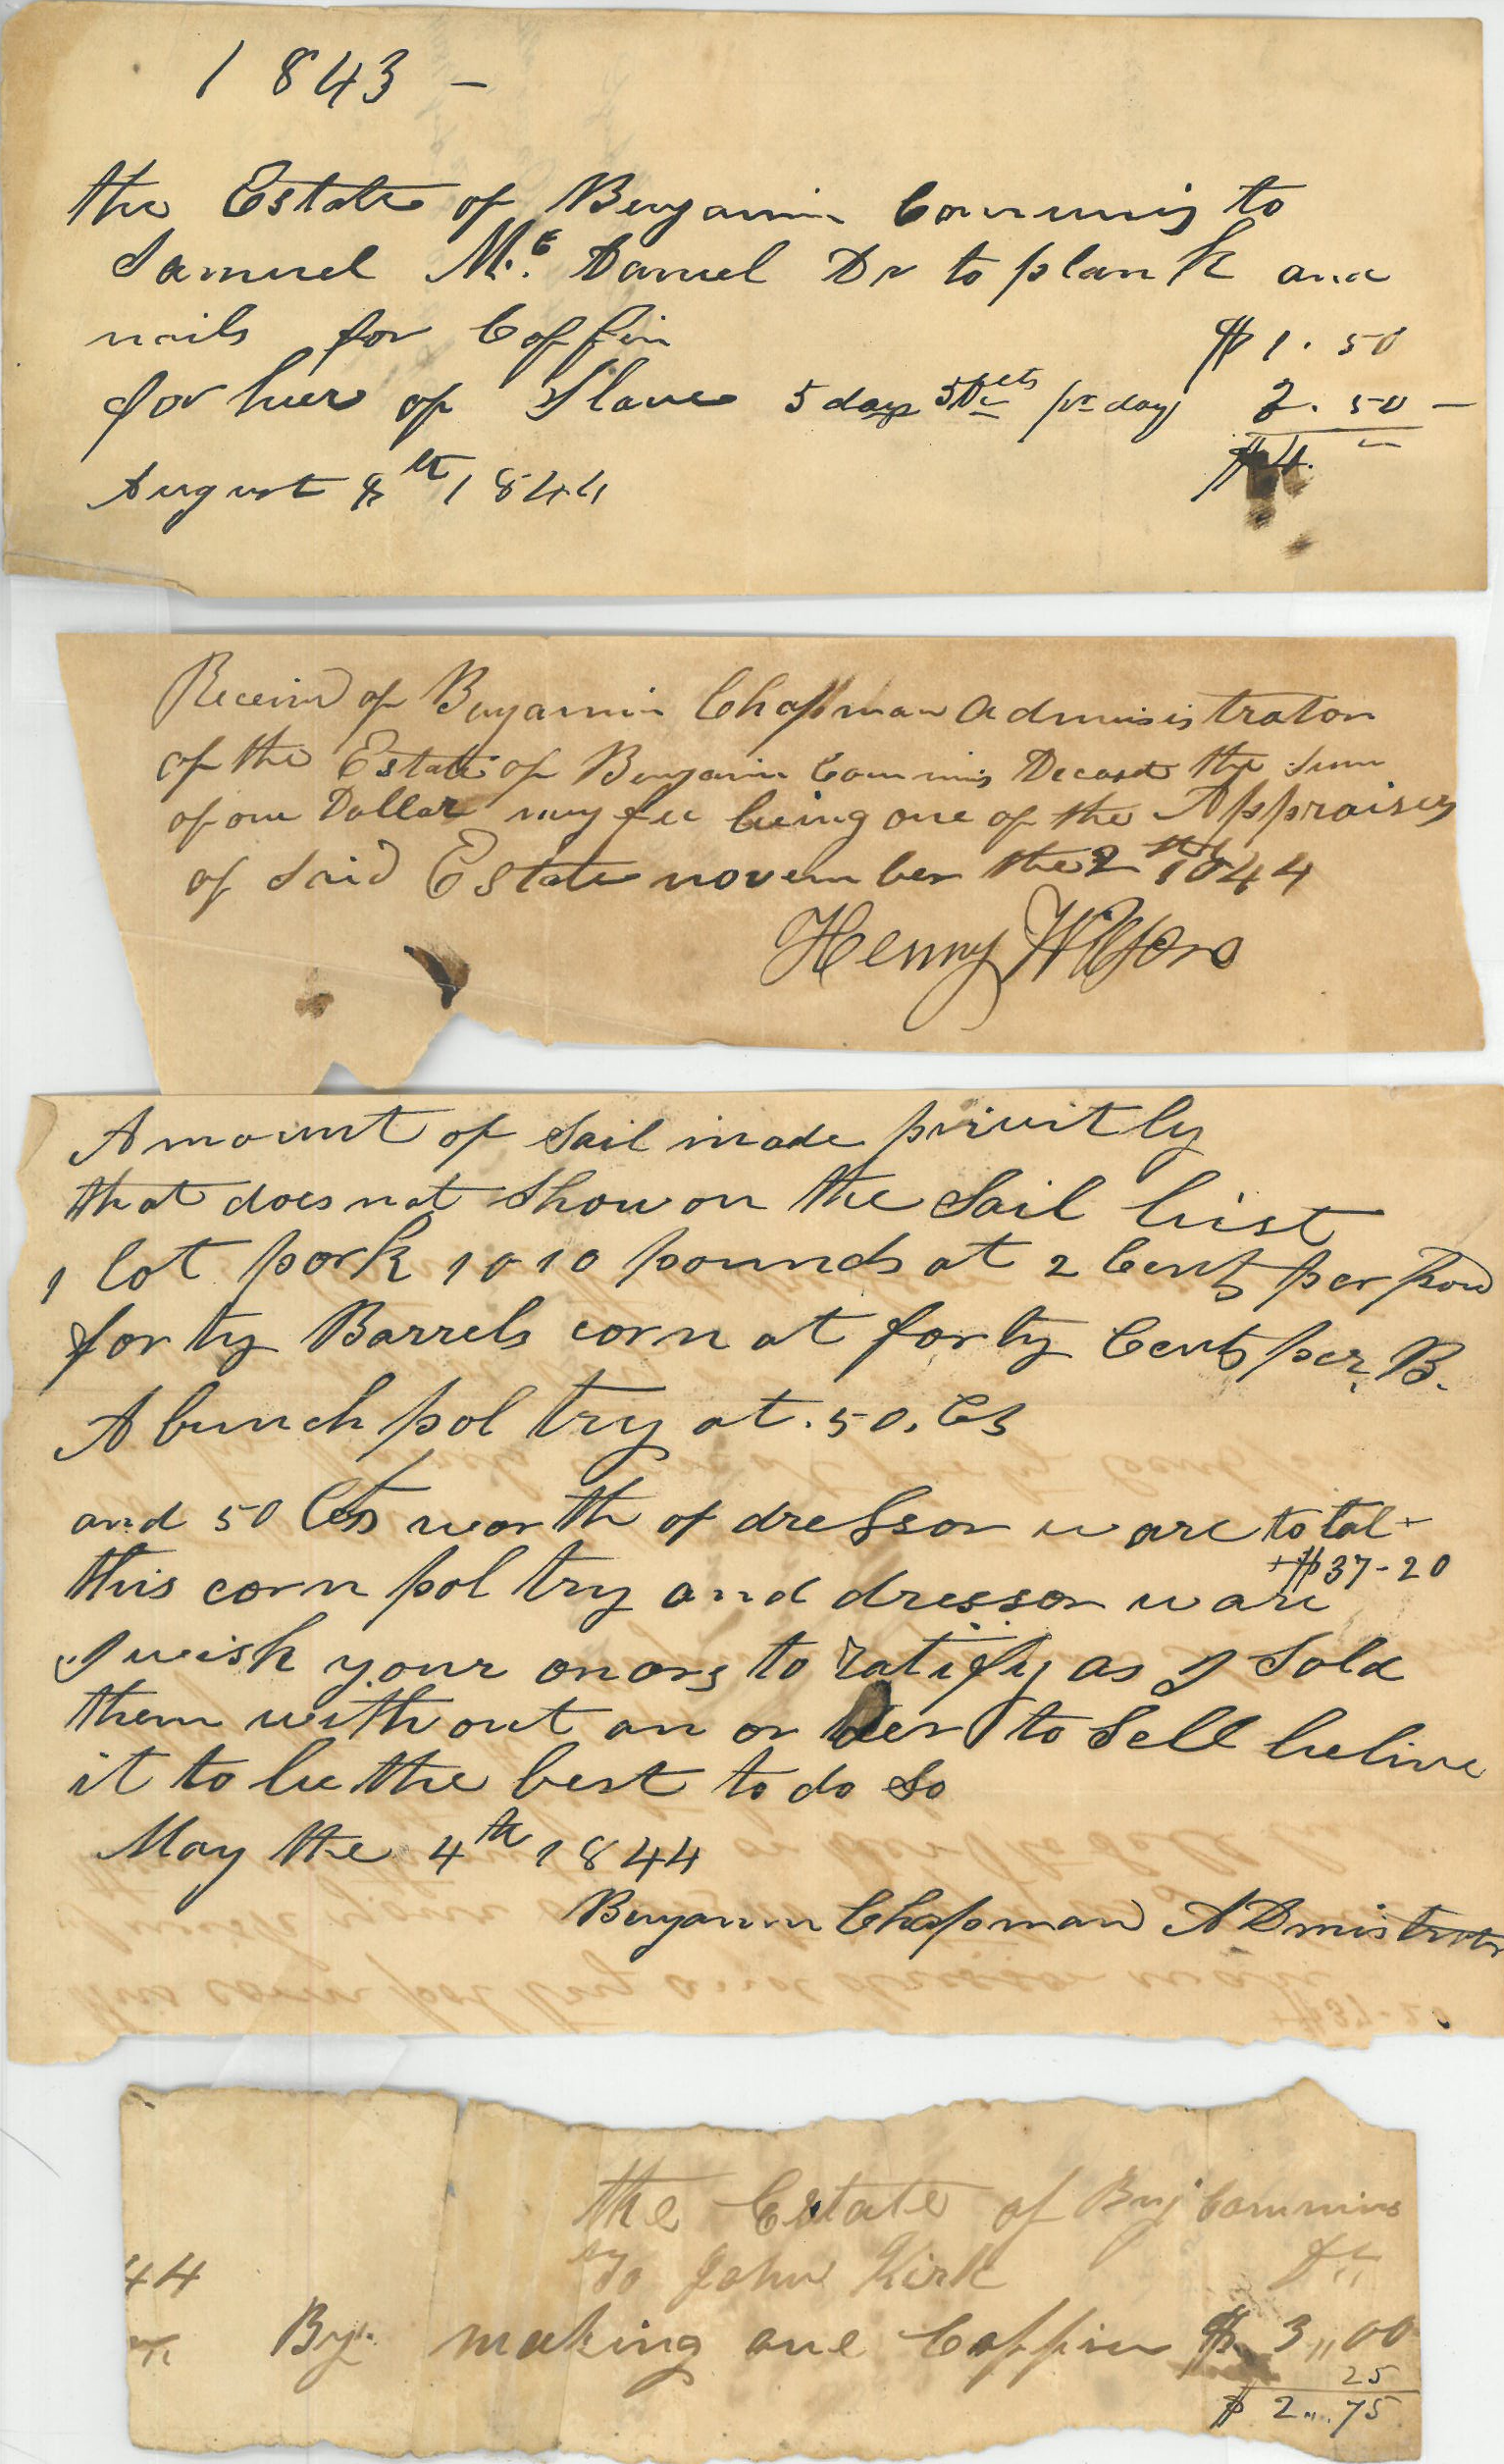 1843 –
the Estate of Benjamin Commins to
Samuel Mc Daniel Dr to plank and
nails for Coffin $1.50
for hier of Slave 5 days 50cts pr day 2.50 –
$4.
August 8th 1844
Receivd of Benjamin Chapman administrator
of the Estate of Benjamin Commins Deceasd the sum
of one Dollar my fee being one of the Appraisers
of Said Estate november the 2 1844
Henry Wilson
Amount of Sail made privitly
that does not Show on the Sail List
1 lot pork 1010 pounds at 2 Cents per Pou
forty Barrels corn at forty Cents per. B.
A bunch poltry at .50. Cts
and 50 Cts worth of dressor ware total
+$37-20
this corn poltry and dressor ware
I wish your onors to ratify as I Sold
them without an order to Sell belive
it to be the best to do So
May the 4th 1844
Benjamin Chapman ADmistrator
the Estate of Benj Commins
To John Kirk Dr
44
By making one Coffin $ 3,,00
25
$ 2,,75